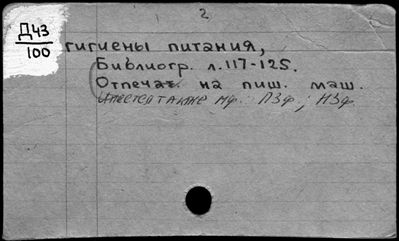 2
Д43
100
гигиены питания,
Библиогр. л.117-125.
Отпечат. на пиш. маш.
Имеется также мф. ПЗф, НЗф.